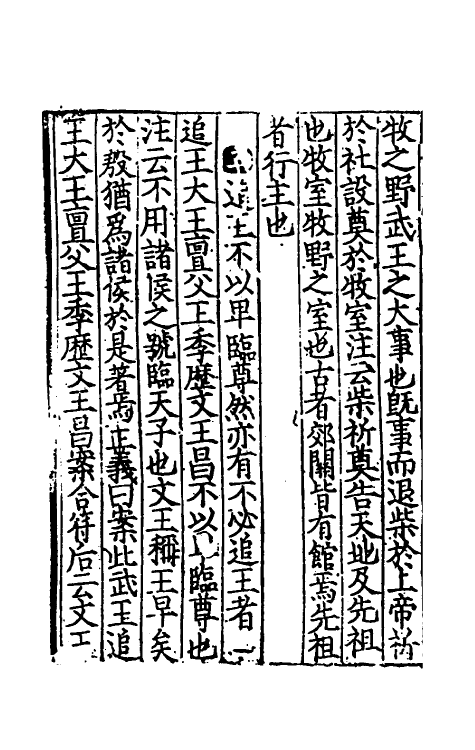 牧之野武王之大事也既事而退柴於上帝祈
於社設奠於牧室注云柴祈奠告天地及先祖
也牧室牧野之室也古者郊關皆有館焉先祖
者行主也
追王不以卑臨尊然亦有不必追王者
追王大王亶父王季歷文王昌不以臨尊也
注云不用諸侯之號臨天子也文王稱王早矣
於殷猶爲諸侯於是著焉正義曰案此武王追
王大王亶父王季歷文王昌案合符后云文王